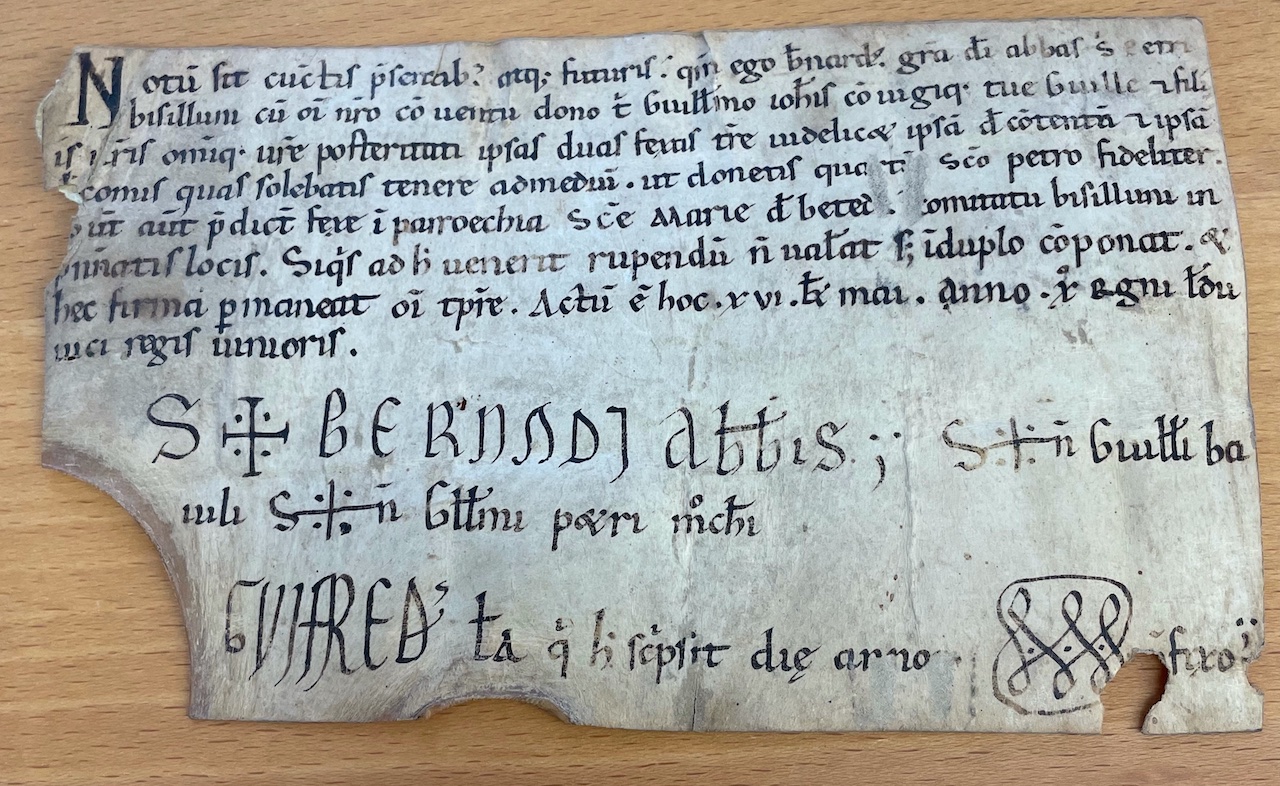 Notū sit cūctis p̄sentab; atq; futuris. qm̄ ego b̄nard; gr̄a dī abbas S
bisillum cū oī nr̄o cōventu dono t̄ Guillm̄o ioh̄is cōiugiq; tue Guille ⁊ fili
is omīq; ur̄e posteritati ipsas duas fexas tr̄e uidelicet ipsā d̄ cōtentā ⁊ ipsā
comis quas solebatis tenere admediū. ut donetis Sc̄o petro fideliter.
aūt p̄dict̄ fexe ī parroechia Sc̄e Marie d̄ beted. Comitatu bisilluni in
p̄nn̄atis locis. Siq̄s ad h̄ uenerit rupendū n̄ ual̄at s; īduplo cōponat. &
hec firma p̄maneat oī tp̄re. Actū ē hoc .xvi. kł mai. Anno .x̊ Regni łodu
uici regis iunioris.
S ✠ BERNADI Abb̄is ;; S+n̄ Guillı̄ ba
iuli S+n̄ Głłmi petri m̊ch̄i
GUIFRED' łta q̄ h̄ sc̄psit die anno